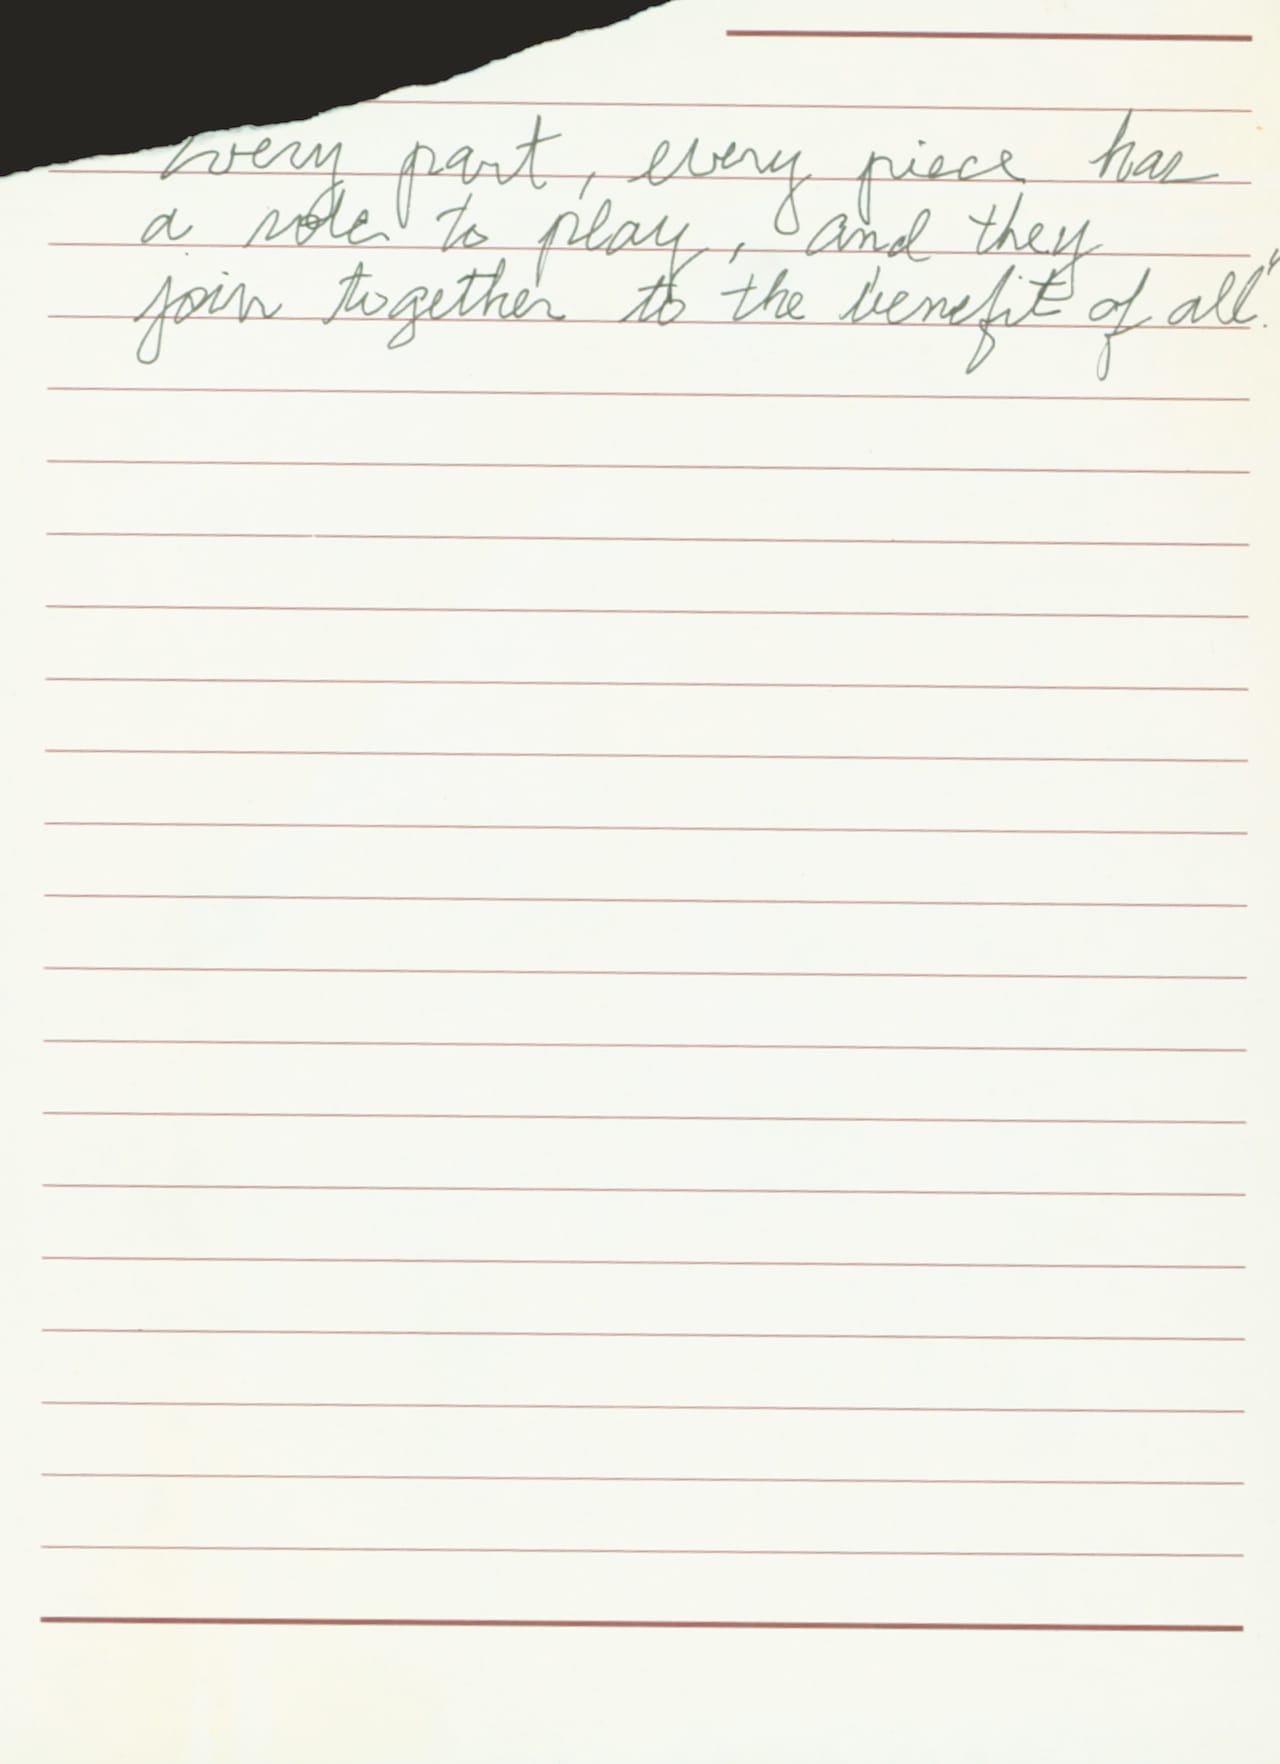 Every part, every piece has
a role to play, and they
join together to the benefit of all."